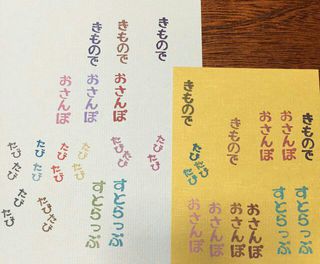 きもので
きもので
きもので
おさんぽ
おさんぽ
おさんぽ
たび
たび
たびたび
たび
たび
たび
たび
たび
たび
たび
たび
たびたび
たび
たび
すとらっぷ
すとらっぷ
きもので
おさんぽ
おさんぽ
きもので
きもので
たびたび
すとらっぷ
すとらっぷ
おさんぽ
おさんぽ
おさんぽ
おさんぽ